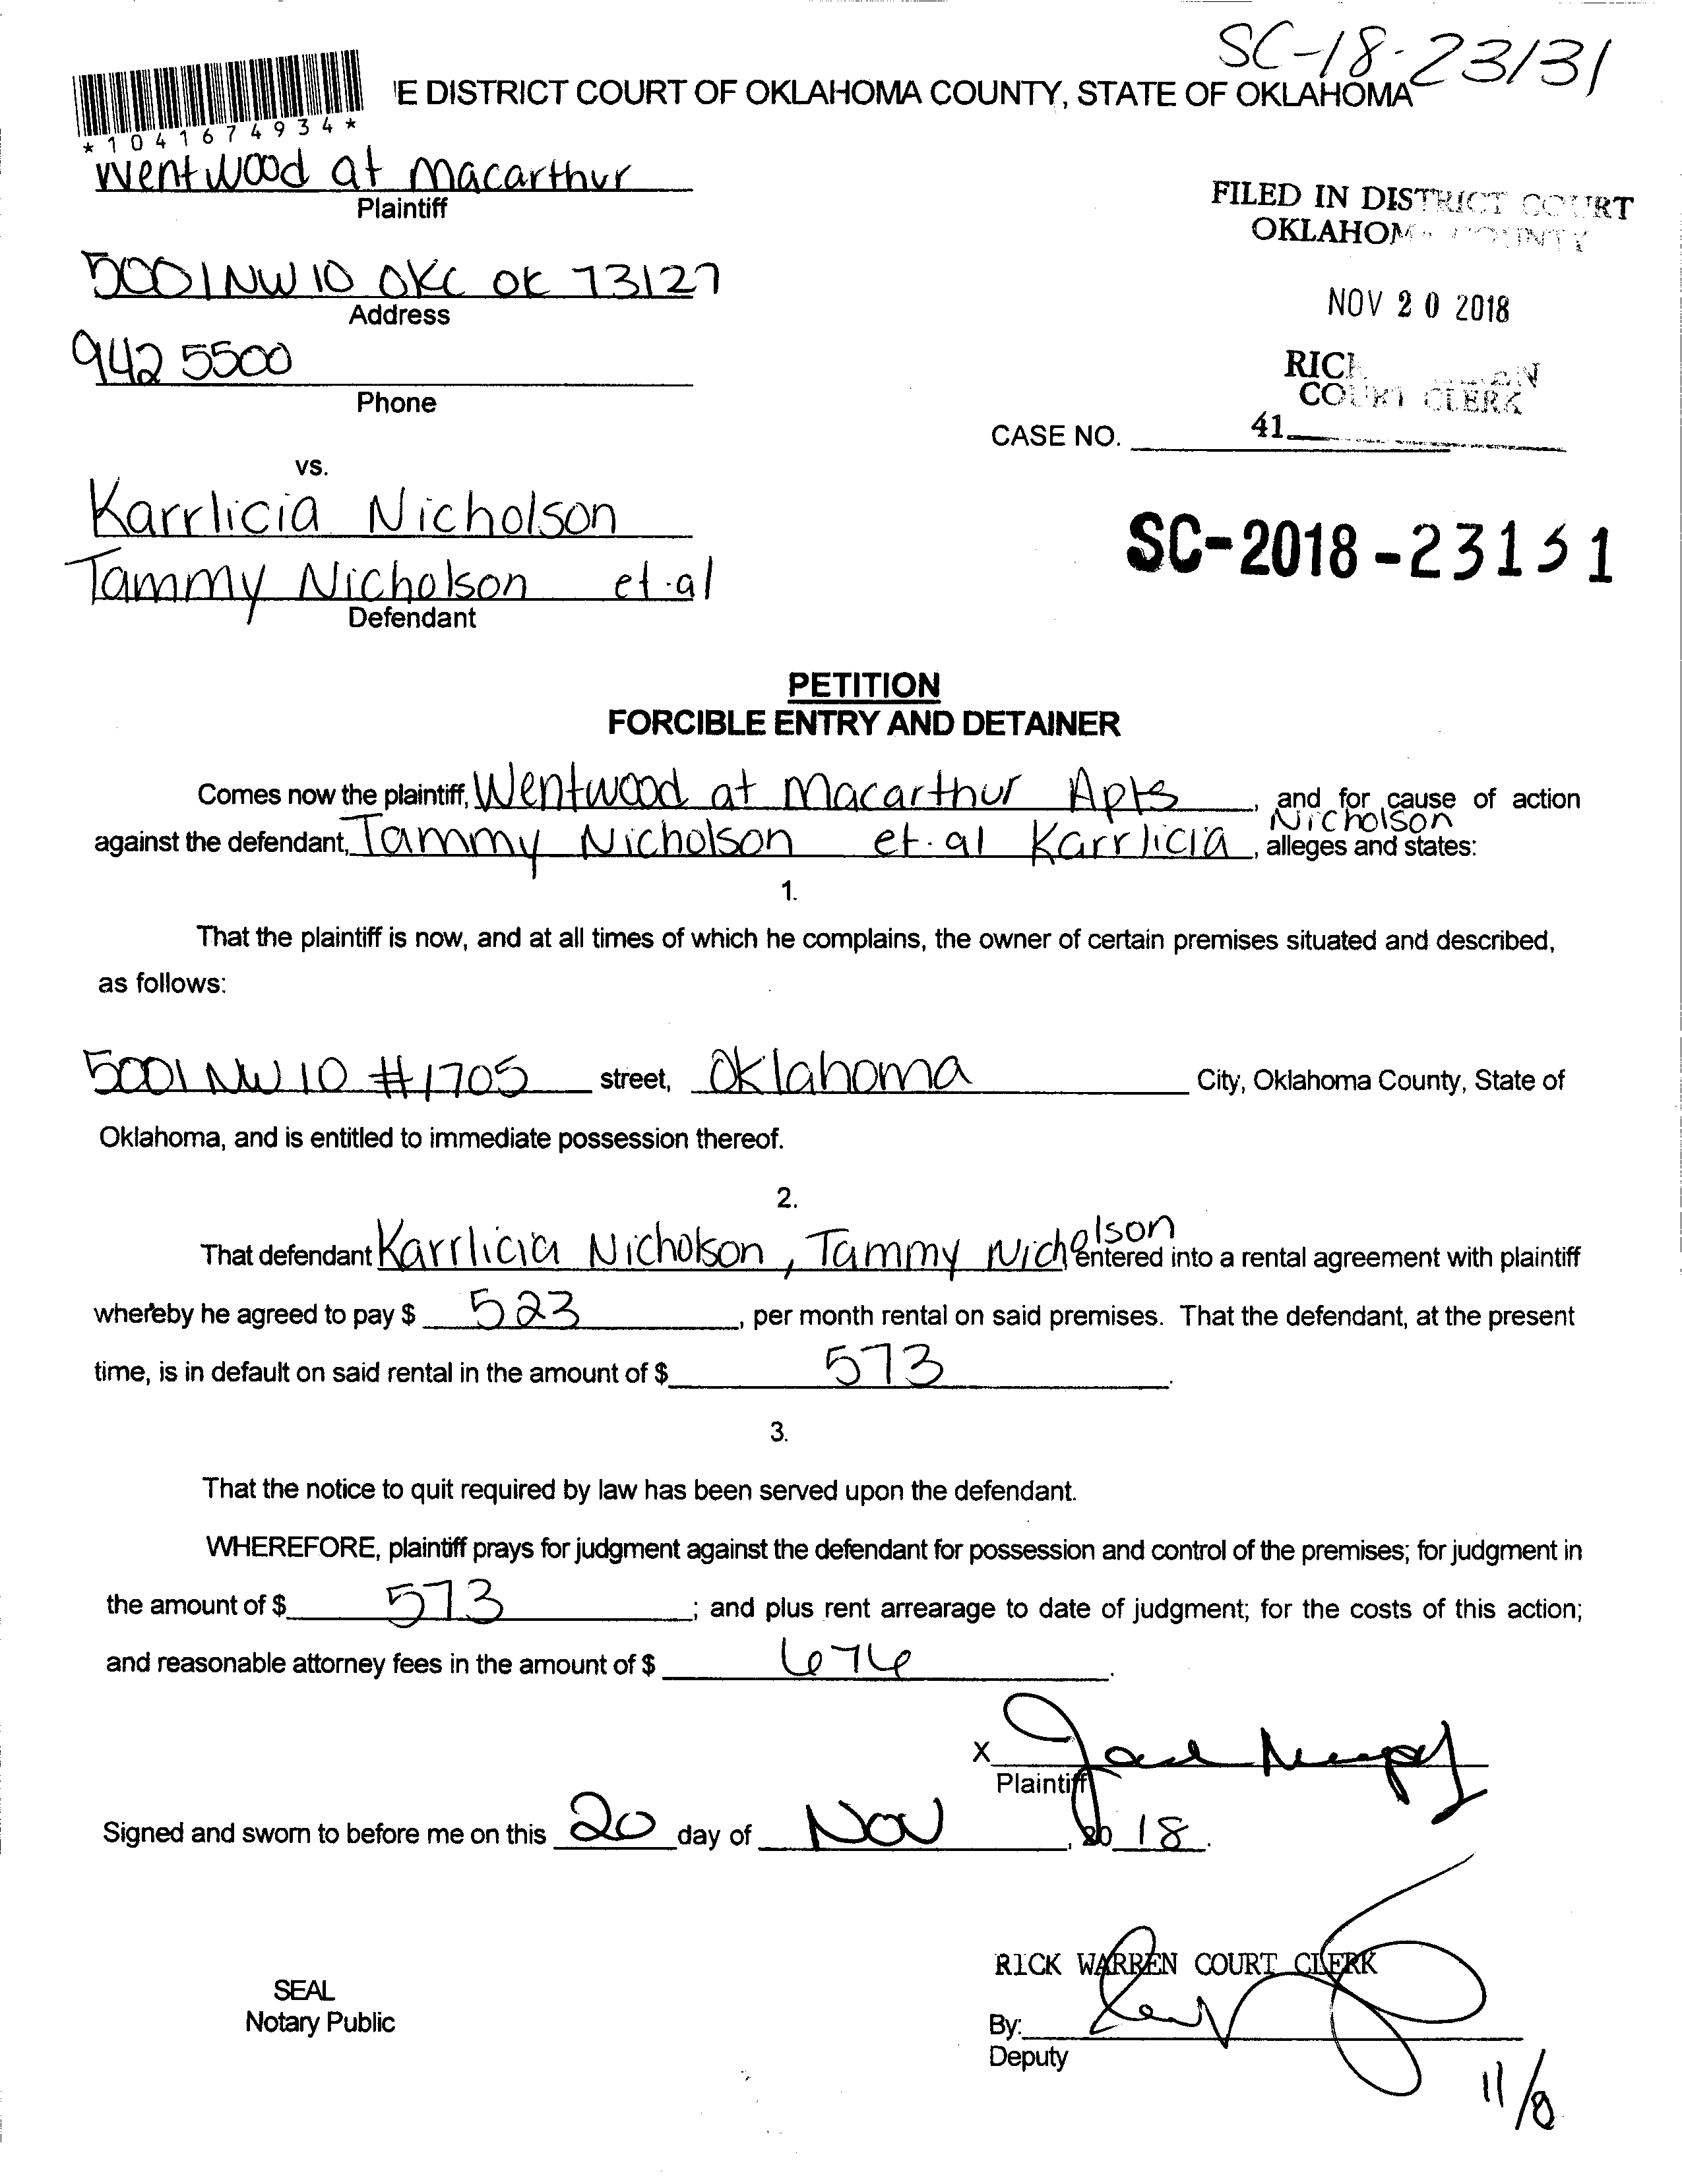 SC-18-23131
'E DISTRICT COURT OF OKLAHOMA COUNTY, STATE OF OKLAHOMA
*1041674934*
Wentwood at Macarthur
Plaintiff
FILED IN DISTRICT COURT
OKLAHOMA COUNTY
5001 NW 10 OKC OK 73127
Address
NOV 20 2018
942 5500
Phone
COURT CLERK
41
CASE NO.
vs.
Karrlicia Nicholson
Tammy Nicholson et.al
Defendant
SC-2018-23131
PETITION
FORCIBLE ENTRY AND DETAINER
Comes now the plaintiff, Wentwood at Macarthur Apts, and for cause of action
against the defendant, Tammy Nicholson et.al Karrlicia Nicholson, alleges and states:
1.
That the plaintiff is now, and at all times of which he complains, the owner of certain premises situated and described,
as follows:
5001 NW 10 #1705 street, Oklahoma City, Oklahoma County, State of
Oklahoma, and is entitled to immediate possession thereof.
2.
That defendant Karrlicia Nicholson, Tammy Nicholson entered into a rental agreement with plaintiff
whereby he agreed to pay $ 523, per month rental on said premises. That the defendant, at the present
time, is in default on said rental in the amount of $ 573.
3.
That the notice to quit required by law has been served upon the defendant.
WHEREFORE, plaintiff prays for judgment against the defendant for possession and control of the premises; for judgment in
the amount of $ 573; and plus rent arrearage to date of judgment; for the costs of this action;
and reasonable attorney fees in the amount of $ 676.
X
Plaintiff
Signed and sworn to before me on this 20 day of Nov, 20 18.
RICK WARREN COURT CLERK
SEAL
Notary Public
By:
Deputy
11/8